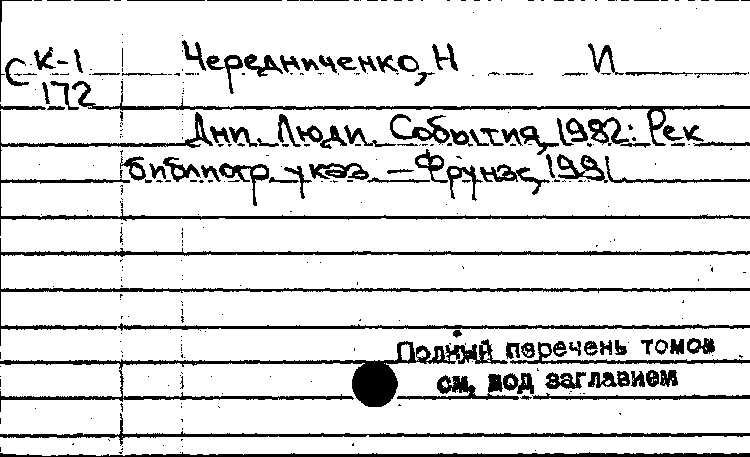 С К-1 Чередниченко, Н И
172
Дни. Люди. События, 1982: Рек
библиогр. указ. — Фрунзе, 1981.
Полный перечень томов
см. под заглавием